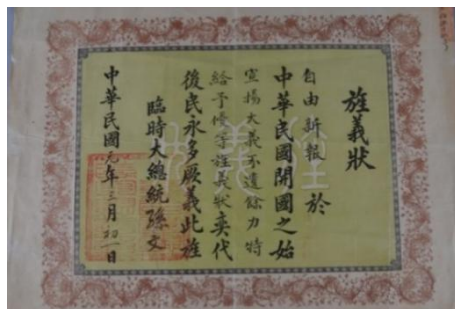 旌義狀
自由新報於
中華民國開國之始
宣揚大義不遺餘力特
給予優等旌義狀奕代
後民永多厥義此旌
臨時大總統孫文
中華民國元年三月初一日
旌義狀